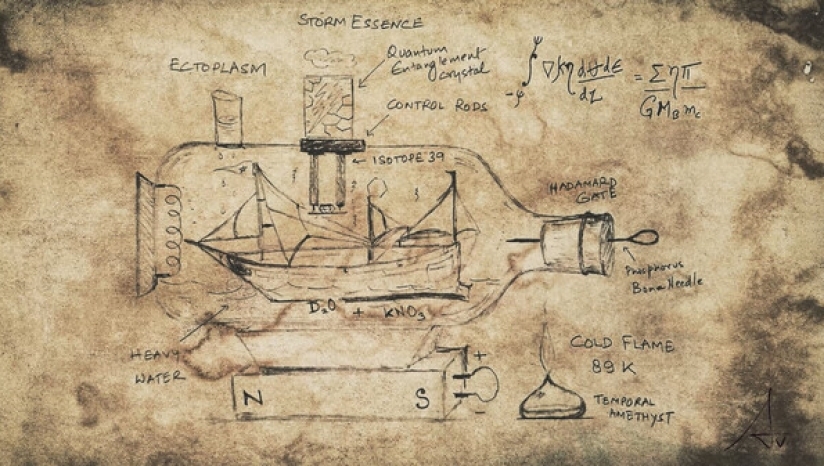 STORM ESSENCE
ECTOPLASM
Quantum
Entanglement
crystal
CONTROL RODS
ISOTOPE 39
HADAMARD
GATE
Phosphorus
Bone Needle
D₂O + KNO₃
HEAVY
WATER
N S
+
-
COLD FLAME
89 K
TEMPORAL
AMETHYST